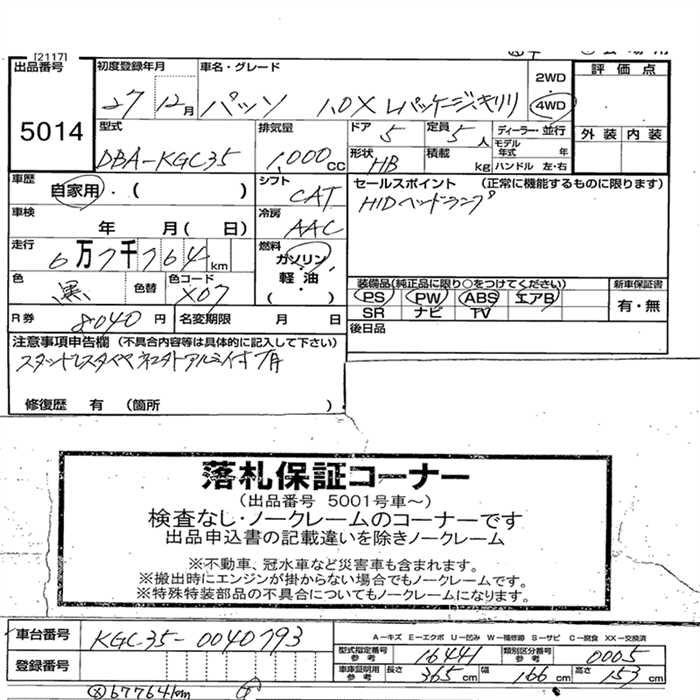 [2117]
出品番号 5014
初度登録年月 27 12月
車名・グレード パッソ 1.0X Lパッケージ・キリリ
2WD
4WD
評価点
外装 内装
型式 DBA-KGC35
排気量 1,000cc
ドア 5
定員 5人
ディーラー・並行
モデル年式 年
形状 HB
積載 kg
ハンドル 左・右
車歴 自家用・( )
シフト CAT
セールスポイント (正常に機能するものに限ります)
HIDヘッドランプ
車検 年 月( 日)
冷房 AAC
走行 6万7千764km
燃料 ガソリン・軽油・( )
色 黒 色替
色コード X07
装備品(純正品に限り○をつけてください)
PS PW ABS エアB
SR ナビ TV
新車保証書
有・無
R券 8040円
名変期限 月 日
後日品
注意事項申告欄 (不具合内容等は具体的に記入して下さい)
修復歴 有 (箇所 )
落札保証コーナー
(出品番号 5001号車～)
検査なし・ノークレームのコーナーです
出品申込書の記載違いを除きノークレーム
※不動車、冠水車など災害車も含まれます。
※搬出時にエンジンが掛からない場合でもノークレームです。
※特殊特装部品の不具合についてもノークレームになります。
車台番号 KGC35-0040793
A－キズ E－エクボ U－凹み W－補修跡 S－サビ C－腐食 XX－交換済
型式指定番号 参考 16441
類別区分番号 参考 0005
登録番号
車庫証明用 参考 長さ 365cm 幅 166cm 高さ 153cm
67764km